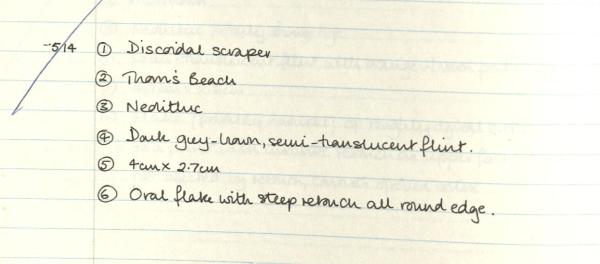 514 ① Discoidal scraper
② Thom's Beach
③ Neolithic
④ Dark grey-brown, semi-translucent flint.
⑤ 4cm x 2.7cm
⑥ Oval flake with steep retouch all round edge.